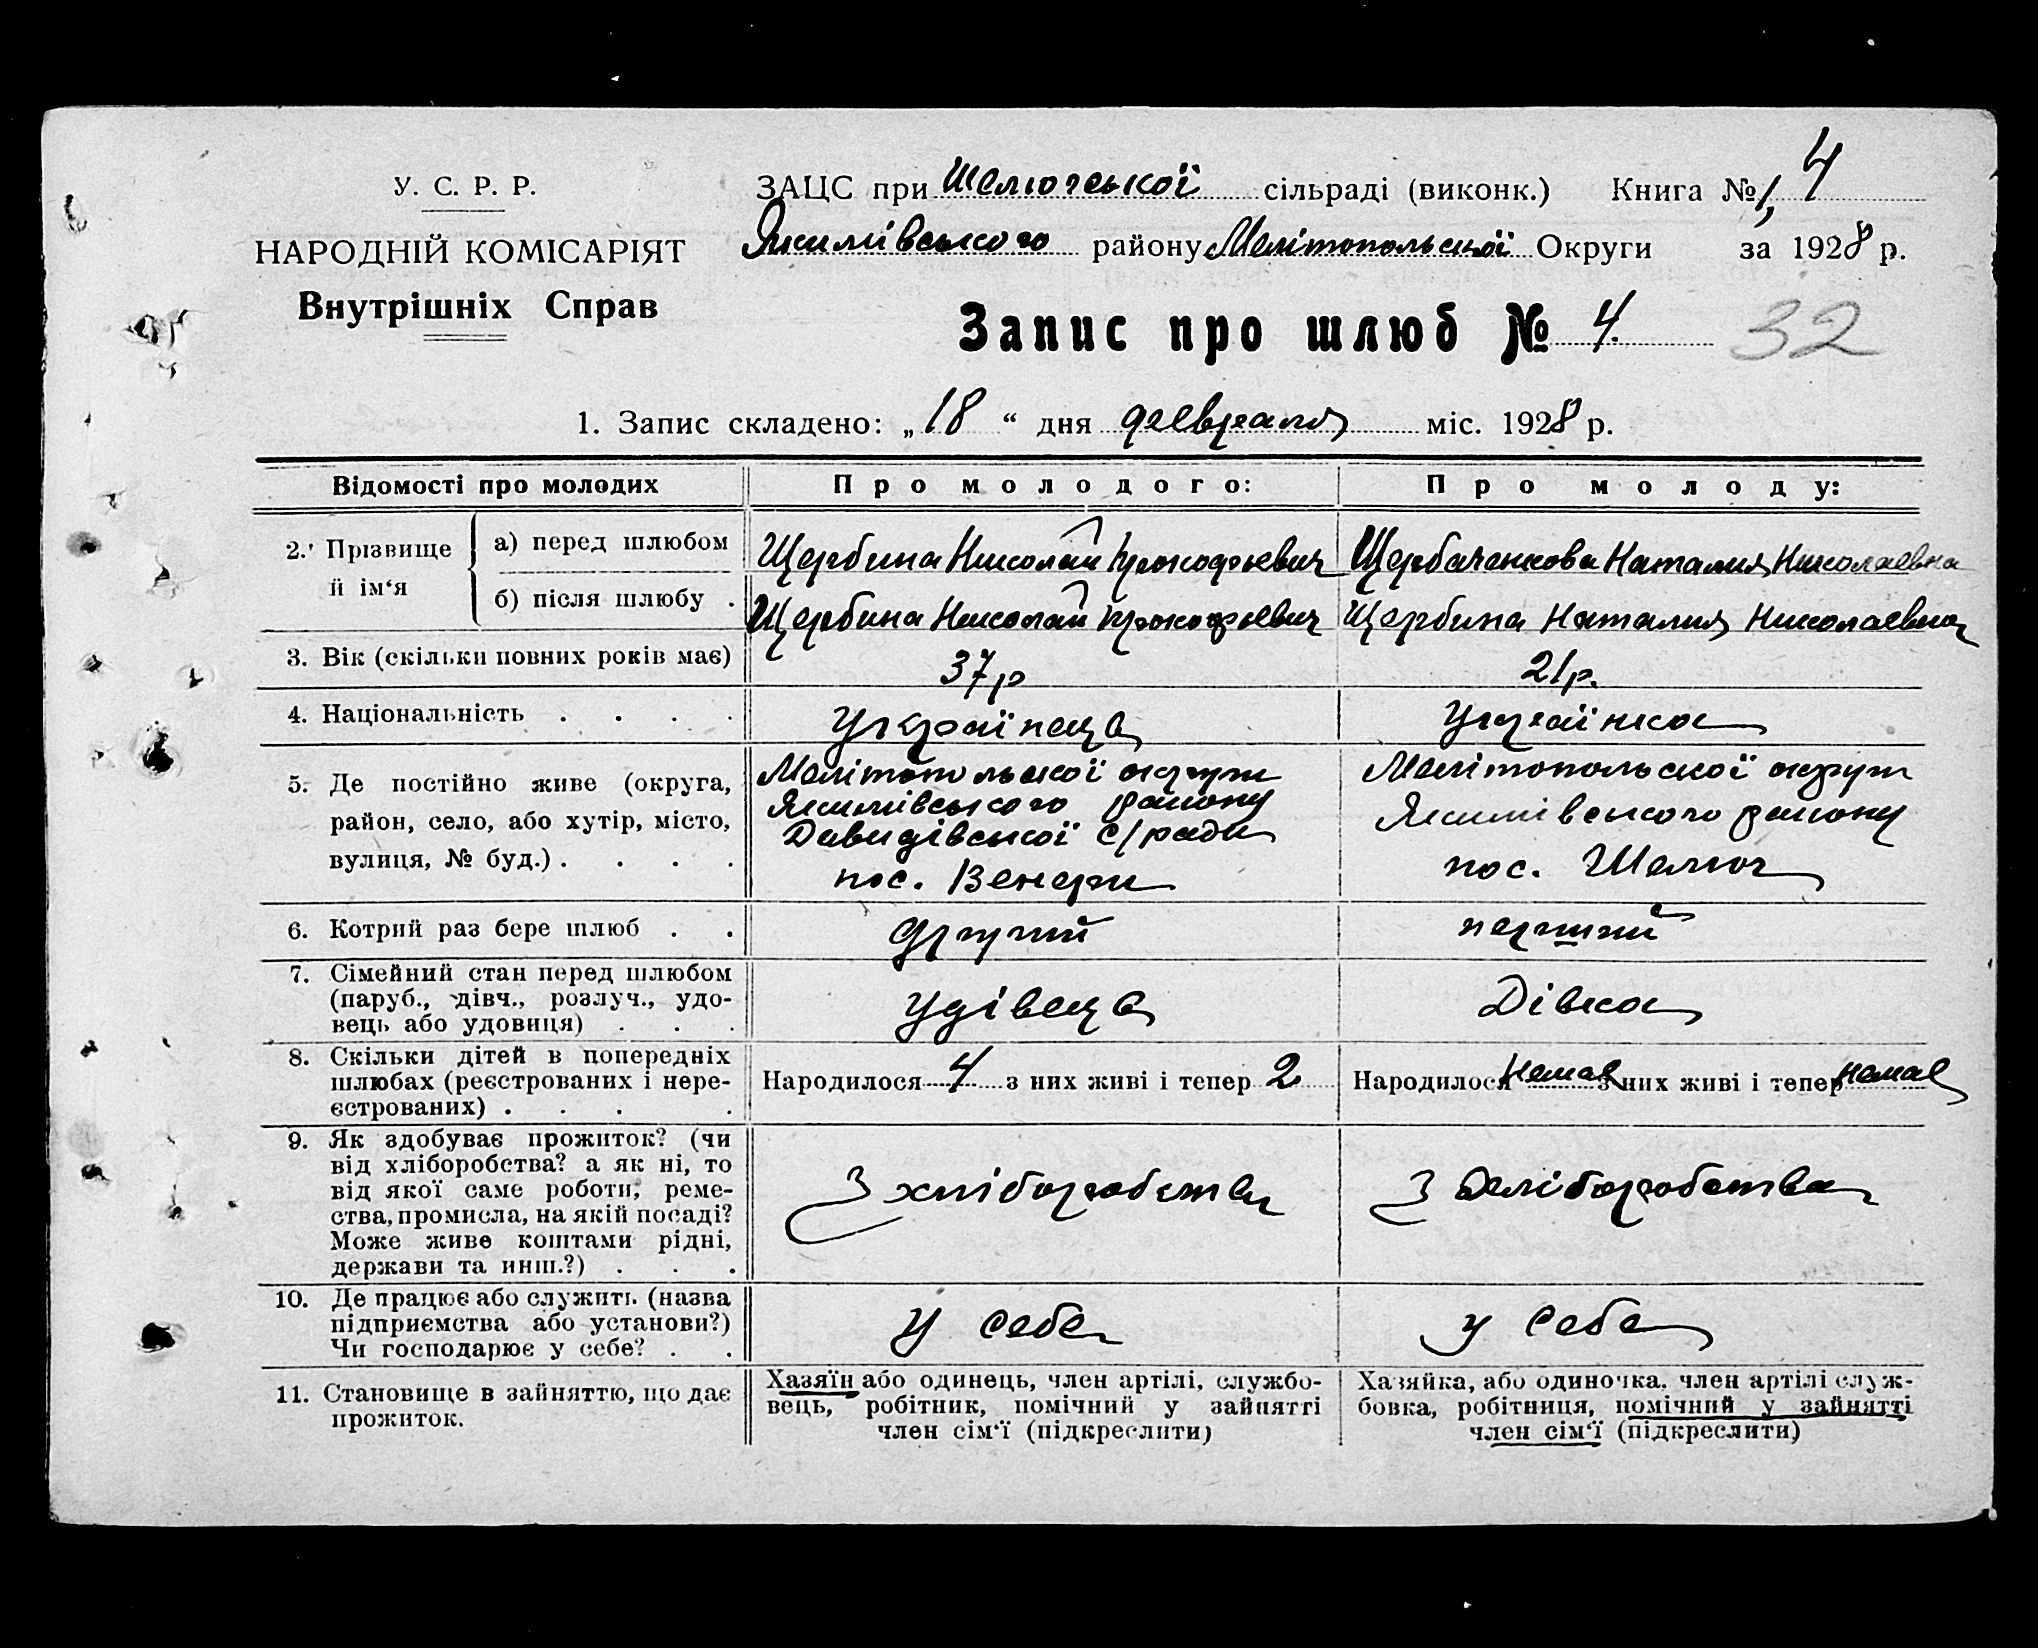 У. С. Р. Р.
НАРОДНІЙ КОМІСАРІЯТ
Внутрішніх Справ
ЗАЦС при Шелюгської сільраді (виконк.) Книга № 1, 4
Якимівського району Мелітопольської Округи за 1928 р.
Запис про шлюб № 4. 32
1. Запис складено: „18“ дня февраля міс. 1928 р.
Відомості про молодих Про молодого: Про молоду:
2. Прізвище й ім‘я
а) перед шлюбом Щербина Николай Прокофьевич Щербаченкова Наталия Николаевна
б) після шлюбу . Щербина Николай Прокофьевич Щербина Наталия Николаевна
3. Вік (скільки повних років має) 37 р 21 р.
4. Національність . . . . Українець Українка
5. Де постійно живе (округа,
район, село, або хутір, місто,
вулиця, № буд.) . . . .
Мелітопольської округи
Якимівського району
Давидівської с/ради
пос. Венери
Мелітопольської округи
Якимівського району
пос. Шелюг
6. Котрий раз бере шлюб . . другий перший
7. Сімейний стан перед шлюбом
(паруб., дівч., розлуч., удо-
вець або удовиця) . . .
Удівець Дівка
8. Скільки дітей в попередніх
шлюбах (реєстрованих і нере-
єстрованих) . . . .
Народилося 4 з них живі і тепер 2 Народилося немає з них живі і тепер немає
9. Як здобуває прожиток? (чи
від хліборобства? а як ні, то
від якої саме роботи, реме-
ства, промисла, на якій посаді?
Може живе коштами рідні,
держави та инш.?) . . .
З хліборобства З хліборобства
10. Де працює або служить (назва
підприємства або установи?)
Чи господарює у себе? . .
У себе У себе
11. Становище в зайняттю, що дає
прожиток.
Хазяїн або одинець, член артілі, службо-
вець, робітник, помічний у зайнятті
член сім‘ї (підкреслити)
Хазяйка, або одиночка, член артілі служ-
бовка, робітниця, помічний у зайнятті
член сім‘ї (підкреслити)